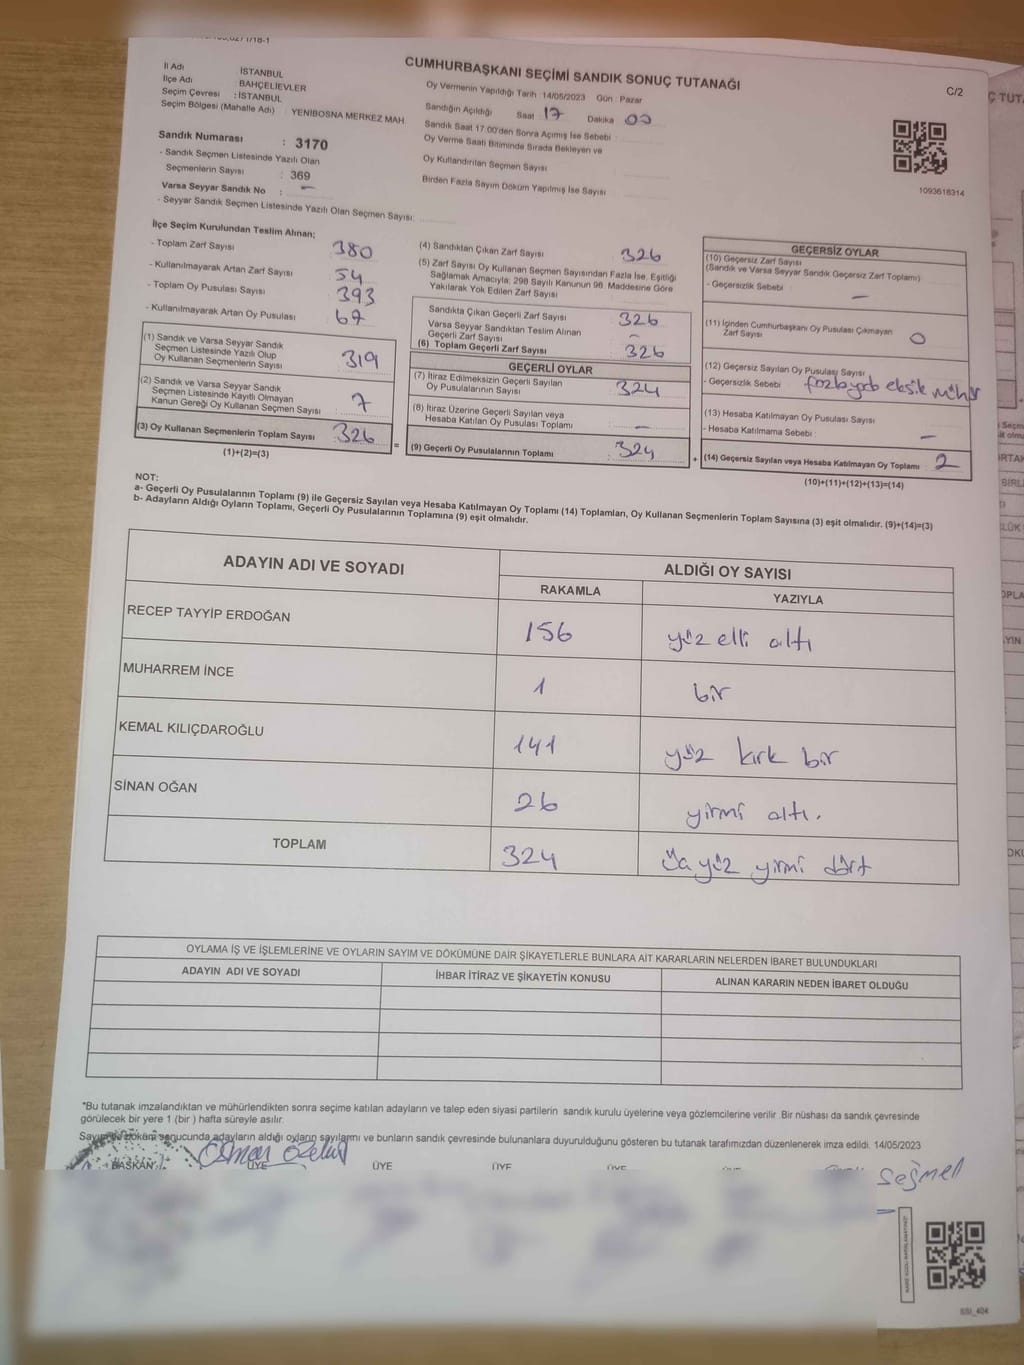 CUMHURBAŞKANI SEÇİMİ SANDIK SONUÇ TUTANAĞI
C/2
İl Adı : İSTANBUL
İlçe Adı : BAHÇELİEVLER
Seçim Çevresi : İSTANBUL
Seçim Bölgesi (Mahalle Adı) : YENİBOSNA MERKEZ MAH.
Sandık Numarası : 3170
- Sandık Seçmen Listesinde Yazılı Olan
Seçmenlerin Sayısı : 369
Varsa Seyyar Sandık No : -
- Seyyar Sandık Seçmen Listesinde Yazılı Olan Seçmen Sayısı:
Oy Vermenin Yapıldığı Tarih : 14/05/2023 Gün : Pazar
Sandığın Açıldığı Saat 17 Dakika 00
Sandık Saat 17:00'den Sonra Açılmış İse Sebebi :
Oy Verme Saati Bitiminde Sırada Bekleyen ve
Oy Kullandırılan Seçmen Sayısı
Birden Fazla Sayım Döküm Yapılmış İse Sayısı
1093618314
İlçe Seçim Kurulundan Teslim Alınan;
- Toplam Zarf Sayısı 380
- Kullanılmayarak Artan Zarf Sayısı 54
- Toplam Oy Pusulası Sayısı 393
- Kullanılmayarak Artan Oy Pusulası 67
(1) Sandık ve Varsa Seyyar Sandık
Seçmen Listesinde Yazılı Olup
Oy Kullanan Seçmenlerin Sayısı 319
(2) Sandık ve Varsa Seyyar Sandık
Seçmen Listesinde Kayıtlı Olmayan
Kanun Gereği Oy Kullanan Seçmen Sayısı 7
(3) Oy Kullanan Seçmenlerin Toplam Sayısı 326
(1)+(2)=(3)
=
(4) Sandıktan Çıkan Zarf Sayısı 326
(5) Zarf Sayısı Oy Kullanan Seçmen Sayısından Fazla İse, Eşitliği
Sağlamak Amacıyla; 298 Sayılı Kanunun 98. Maddesine Göre
Yakılarak Yok Edilen Zarf Sayısı
Sandıkta Çıkan Geçerli Zarf Sayısı 326
Varsa Seyyar Sandıktan Teslim Alınan
Geçerli Zarf Sayısı -
(6) Toplam Geçerli Zarf Sayısı 326
GEÇERLİ OYLAR
(7) İtiraz Edilmeksizin Geçerli Sayılan
Oy Pusulalarının Sayısı 324
(8) İtiraz Üzerine Geçerli Sayılan veya
Hesaba Katılan Oy Pusulası Toplamı -
(9) Geçerli Oy Pusulalarının Toplamı 324
+
GEÇERSİZ OYLAR
(10) Geçersiz Zarf Sayısı
(Sandık ve Varsa Seyyar Sandık Geçersiz Zarf Toplamı)
- Geçersizlik Sebebi : -
(11) İçinden Cumhurbaşkanı Oy Pusulası Çıkmayan
Zarf Sayısı 0
(12) Geçersiz Sayılan Oy Pusulası Sayısı
- Geçersizlik Sebebi eksik mühür
(13) Hesaba Katılmayan Oy Pusulası Sayısı
- Hesaba Katılmama Sebebi : -
(14) Geçersiz Sayılan veya Hesaba Katılmayan Oy Toplamı 2
(10)+(11)+(12)+(13)=(14)
NOT:
a- Geçerli Oy Pusulalarının Toplamı (9) ile Geçersiz Sayılan veya Hesaba Katılmayan Oy Toplamı (14) Toplamları, Oy Kullanan Seçmenlerin Toplam Sayısına (3) eşit olmalıdır. (9)+(14)=(3)
b- Adayların Aldığı Oyların Toplamı, Geçerli Oy Pusulalarının Toplamına (9) eşit olmalıdır.
ADAYIN ADI VE SOYADI
ALDIĞI OY SAYISI
RAKAMLA YAZIYLA
RECEP TAYYİP ERDOĞAN 156 yüz elli altı
MUHARREM İNCE 1 bir
KEMAL KILIÇDAROĞLU 141 yüz kırk bir
SİNAN OĞAN 26 yirmi altı.
TOPLAM 324 üç yüz yirmi dört
OYLAMA İŞ VE İŞLEMLERİNE VE OYLARIN SAYIM VE DÖKÜMÜNE DAİR ŞİKAYETLERLE BUNLARA AİT KARARLARIN NELERDEN İBARET BULUNDUKLARI
ADAYIN ADI VE SOYADI İHBAR İTİRAZ VE ŞİKAYETİN KONUSU ALINAN KARARIN NEDEN İBARET OLDUĞU
*Bu tutanak imzalandıktan ve mühürlendikten sonra seçime katılan adayların ve talep eden siyasi partilerin sandık kurulu üyelerine veya gözlemcilerine verilir. Bir nüshası da sandık çevresinde
görülecek bir yere 1 (bir ) hafta süreyle asılır.
Sayım ve döküm sonucunda adayların aldığı oyların sayılarını ve bunların sandık çevresinde bulunanlara duyurulduğunu gösteren bu tutanak tarafımızdan düzenlenerek imza edildi. 14/05/2023
BAŞKAN ÜYE ÜYE ÜYE ÜYE
Seğmel